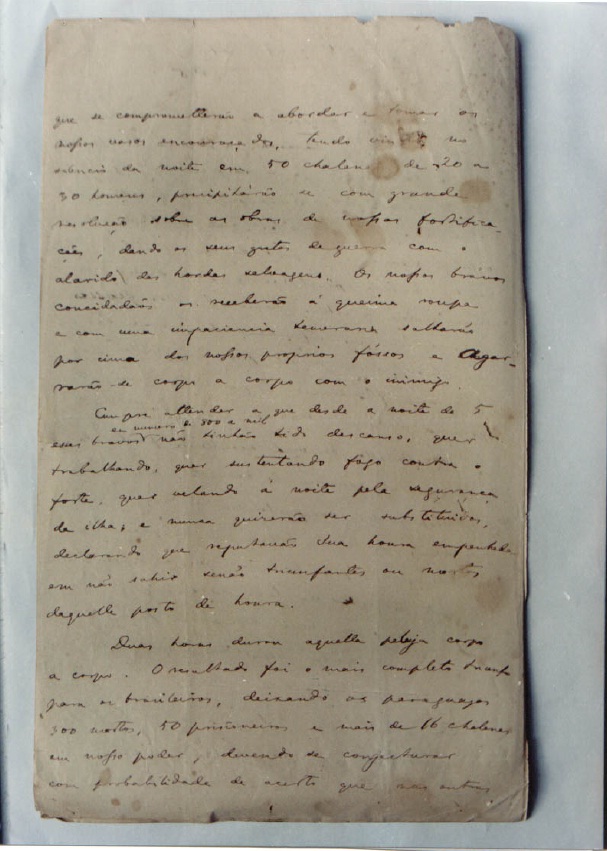 que se comprometterão a abordar e tomar os
nossos vasos encouraçados, tendo vindo no
silencio da noite em 50 chalanas de 20 a
30 homens, precipitárão se com grande
resolução sobre as obras de nossas fortifica-
ções, dando os seus gritos de guerra com o
alarido das hordas selvagens. Os nossos bravos
concidadãos os receberão á queima roupa
e com uma impaciencia temeraria saltarão
por cima dos nossos proprios fóssos e Agar-
rarão-se corpo a corpo com o inimigo.
Cumpre attender a que desde a noite de 5
em numero de 800 a mil
esses bravos não tinhão tido descanso, quer
trabalhando, quer sustentando fogo contra o
forte, quer velando á noite pela segurança
da ilha; e nunca quizerão ser substituidos,
declarando que reputavão sua honra empenhada
em não sahir senão triunfantes ou mortos
daquelle posto de honra.
Duas horas durou aquella peleja corpo
a corpo. O resultado foi o mais completo triunfo
para os brasileiros, deixando os paraguayos
300 mortos, 50 prisioneiros e mais de 16 chalanas
em nosso poder, devendo se conjecturar
com probabilidade de acerto que nas outras